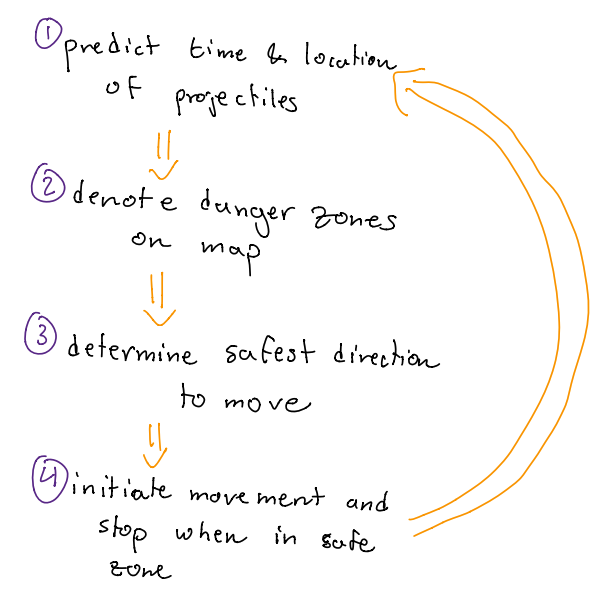 ① predict time & location
of projectiles
② denote danger zones
on map
③ determine safest direction
to move
④ initiate movement and
stop when in safe
zone